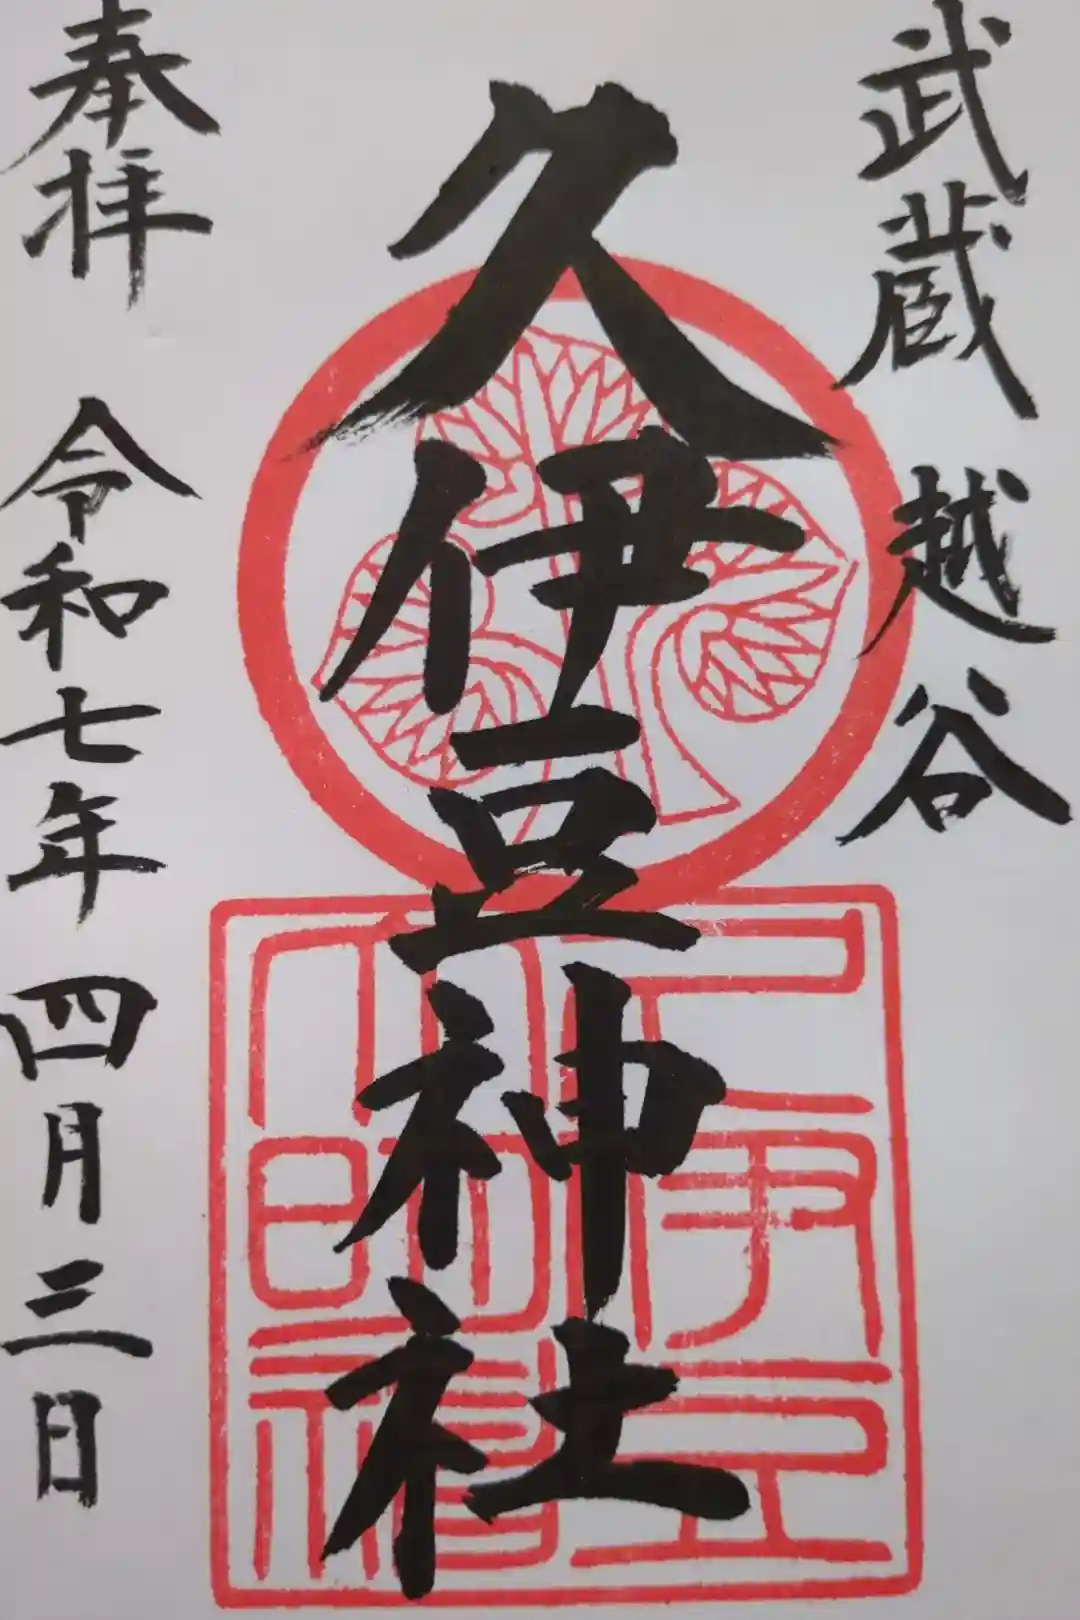 武蔵 越谷
久伊豆神社
奉拝 令和七年 四月三日